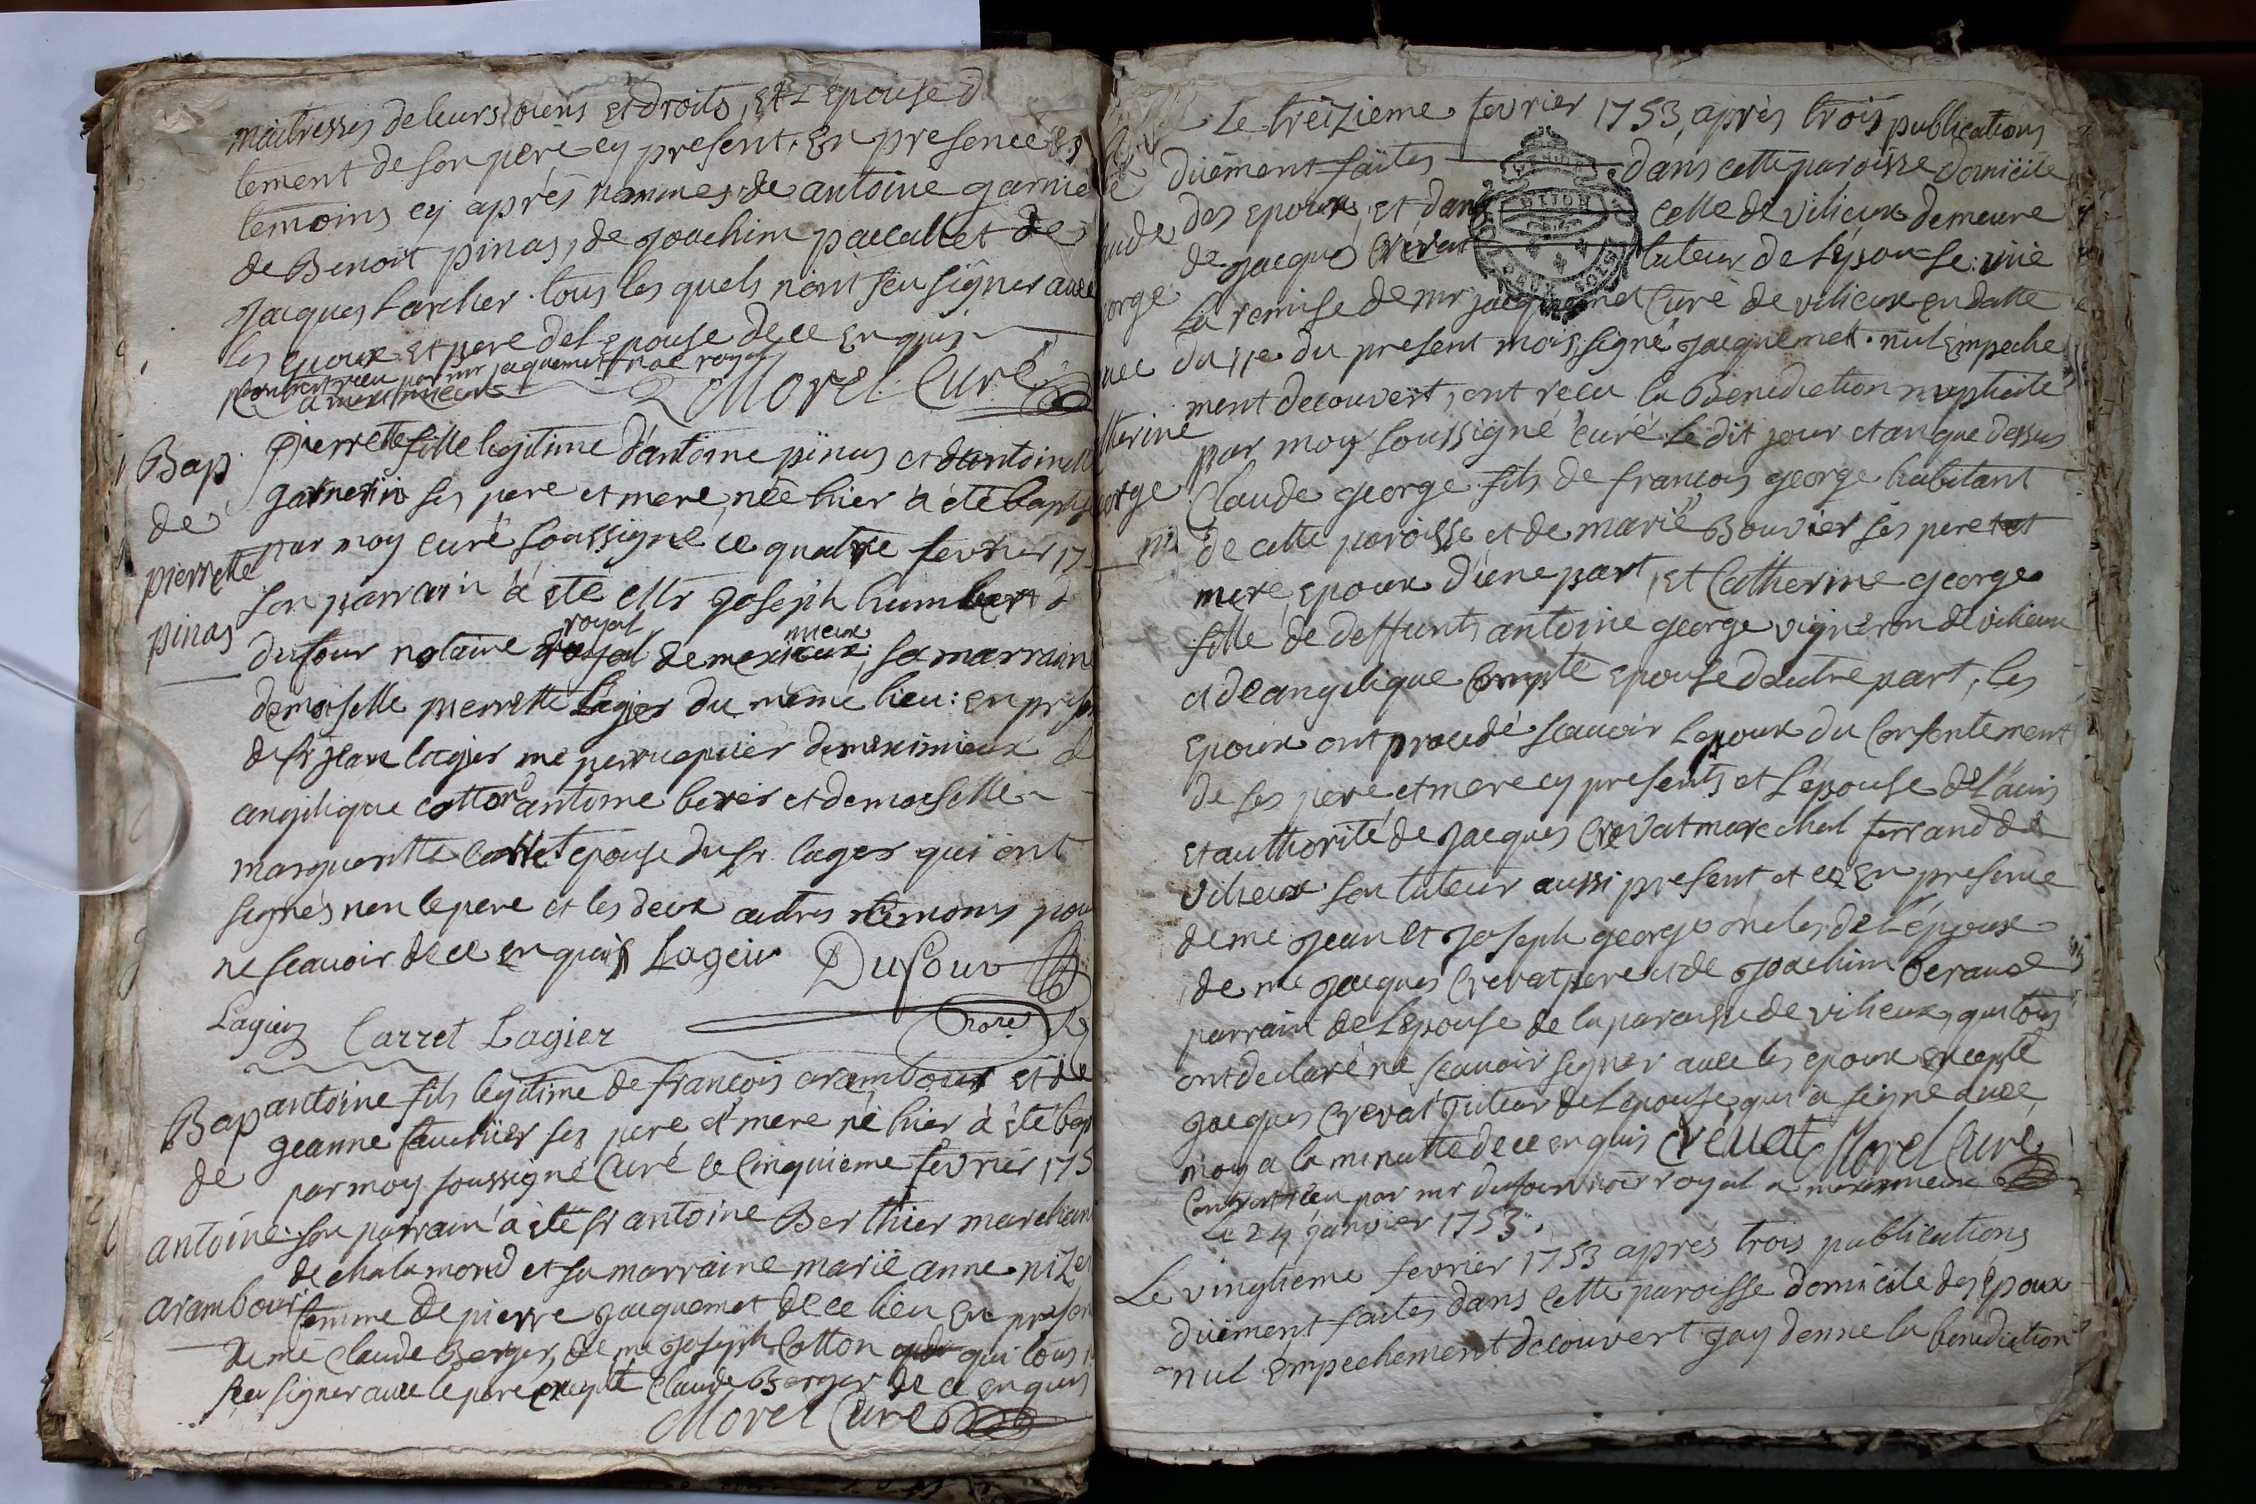 maitresses de leurs biens et droits, et l'epouse d
tement de son pere cy present. En presence des
temoins cy aprés nommes de antoine garnie
de Benoit pinas, de joachim paccallet de
jacques Larcher. tous les quels n'ont seu signer avec
les epoux et pere de l'epouse de ce enquis
contrat recu par mr jaquemet noe royal
a meximieux Morel Curé
Bap
de
pierrette
pinas
pierrette fille legitime d'antoine pinas et d'antoinette
garnerin ses pere et mere, née hier à été baptis
par moy curé soussigné ce quatre fevrier 17
son parrain à été Mr joseph humbert d
dufour notaire royal de meximieux, sa marraine
demoiselle pierrette Lagier du méme lieu: en prese
de sr jean lagier me perruquier de meximieux de
angelique cotton antoine berer et demoiselle
marguerite Carret epouse du sr. lager qui ont
signés non le pere et les deux autres temoins pou
ne scavoir de ce enquis Lagier Dufour
Lagier Carret Lagier nore
Bap
de
antoine
arambour
antoine fils legitime de francois arambour et de
jeanne fauchier ses pere et mere né hier à été bap
par moy soussigné Curé le Cinquieme fevrier 175
son parrain à été sr antoine Berthier marchan
de chalamond et sa marraine marie anne nize
femme de pierre jacquemet de ce lieu en presen
de me claude Berger, de me joseph Cotton qui tous n
seu signer avec le pere excepté claude Berger de ce enquis
Morel Curé
aude
orge
nec
therine
orge
m
Le treizieme fevrier 1753, aprés trois publications
düement faites dans cette paroisse domicile
des epoux, et dans celle de vilieux demeure
de jacques Crévat tuteur de l'épouse: vüe
La remise de mr jacquemet Curé de vilieux en datte
du 11e du present mois, signé jacquemet. nul empeche
ment decouvert, ont recu la Benediction nuptiale
par moy soussigné curé le dit jour et an que dessus
Claude george fils de françois george habitant
de cette paroisse et de marie Bouvier ses pere et
mere, epoux d'une part, et Catherine george
fille de deffunts antoine george vigneron de vilieux
et de angelique Compte epouse d'autre part, les
epoux ont procedé scavoir l'epoux du consentement
de ses pere et mere cy presents et l'épouse de l'avis
et authorité de jacques Crevat marechal ferrand de
vilieux son tuteur aussi present et ce en presence
de me jean et joseph george oncles de l'époux
de me jacques Crevat pere et de joachim beraud
parrain de l'epouse de la paroisse de vilieux, qui tous
ont declaré ne scavoir signer avec les epoux excepté
jacques Crevat Tuteur de l'epouse qui à signé avec
moy a la minutte de ce enquis Crévat Morel Curé
Contrat recu par mr dufour noire royal a meximieux
Le 24 janvier 1753.
Le vingtieme fevrier 1753 aprés trois publications
düement faites dans cette paroisse domicile des époux
nul empechement decouvert jay donné la benediction